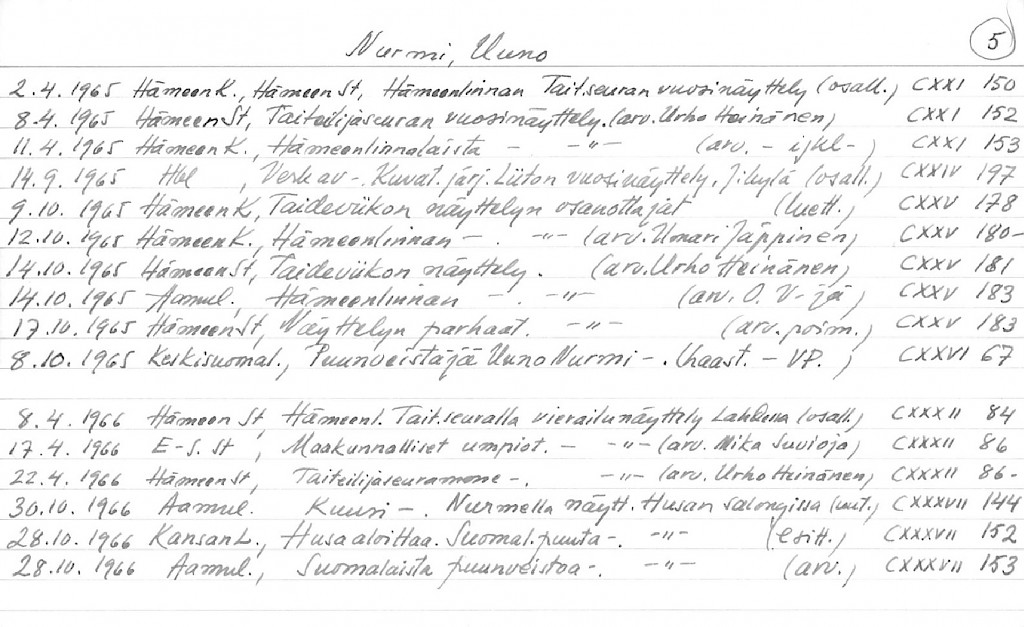 5
Nurmi, Uuno
2.4.1965 HämeenK., HämeenSt, Hämeenlinnan Tait.seuran vuosinäyttely (osall.) CXXI 150
8.4.1965 HämeenSt, Taiteilijaseuran vuosinäyttely. (arv. Urho Heinänen) CXXI 152
11.4.1965 HämeenK., Hämeenlinnalaista - -"- (arv. - ijkl-) CXXI 153
14.9.1965 Hbl, Verk av -. Kuvat. järj. Liiton vuosinäyttely, Jkylä (osall.) CXXIV 197
9.10.1965 HämeenK, Taideviikon näyttelyn osanottajat (luett.) CXXV 178
12.10.1965 HämeenK., Hämeenlinnan -. -"- (arv. Unari Jäppinen) CXXV 180-
14.10.1965 HämeenSt, Taideviikon näyttely. (arv. Urho Heinänen) CXXV 181
14.10.1965 Aamul., Hämeenlinnan -. -"- (arv. O. V-jä) CXXV 183
17.10.1965 HämeenSt, Näyttelyn parhaat. -"- (arv. poim.) CXXV 183
8.10.1965 Keskisuomal., Puunveistäjä Uuno Nurmi -. (haast. - VP.) CXXVI 67
8.4.1966 HämeenSt, Hämeenl. Tait.seuralla vierailunäyttely Lahdessa (osall.) CXXXII 84
17.4.1966 E-S. St, Maakunnalliset umpiot. - -"- (arv. Mika Suvioja) CXXXII 86
22.4.1966 HämeenSt, Taiteilijaseuramme -. -"- (arv. Urho Heinänen) CXXXII 86-
30.10.1966 Aamul. Kuusi -. Nurmella näytt. Husan salongissa (uut.) CXXXVII 144
28.10.1966 KansanL., Husa aloittaa. Suomal. puuta -. -"- (esitt.) CXXXVII 152
28.10.1966 Aamul., Suomalaista puunveistoa -. -"- (arv.) CXXXVII 153